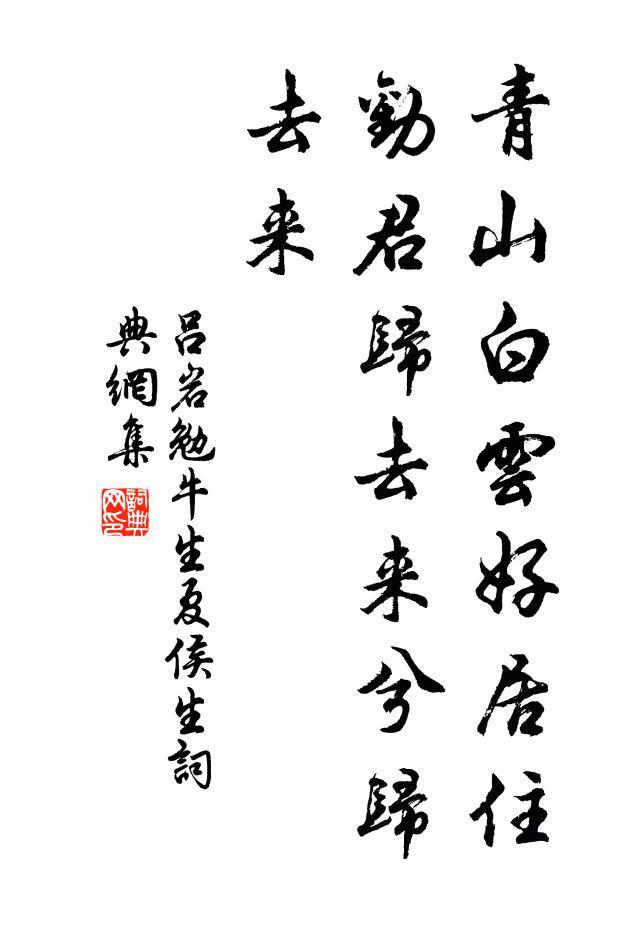 青山白雲好居住
勸君歸去来兮歸
去来
吕岩勉牛生夏侯生詞
典網集
詞典
网印